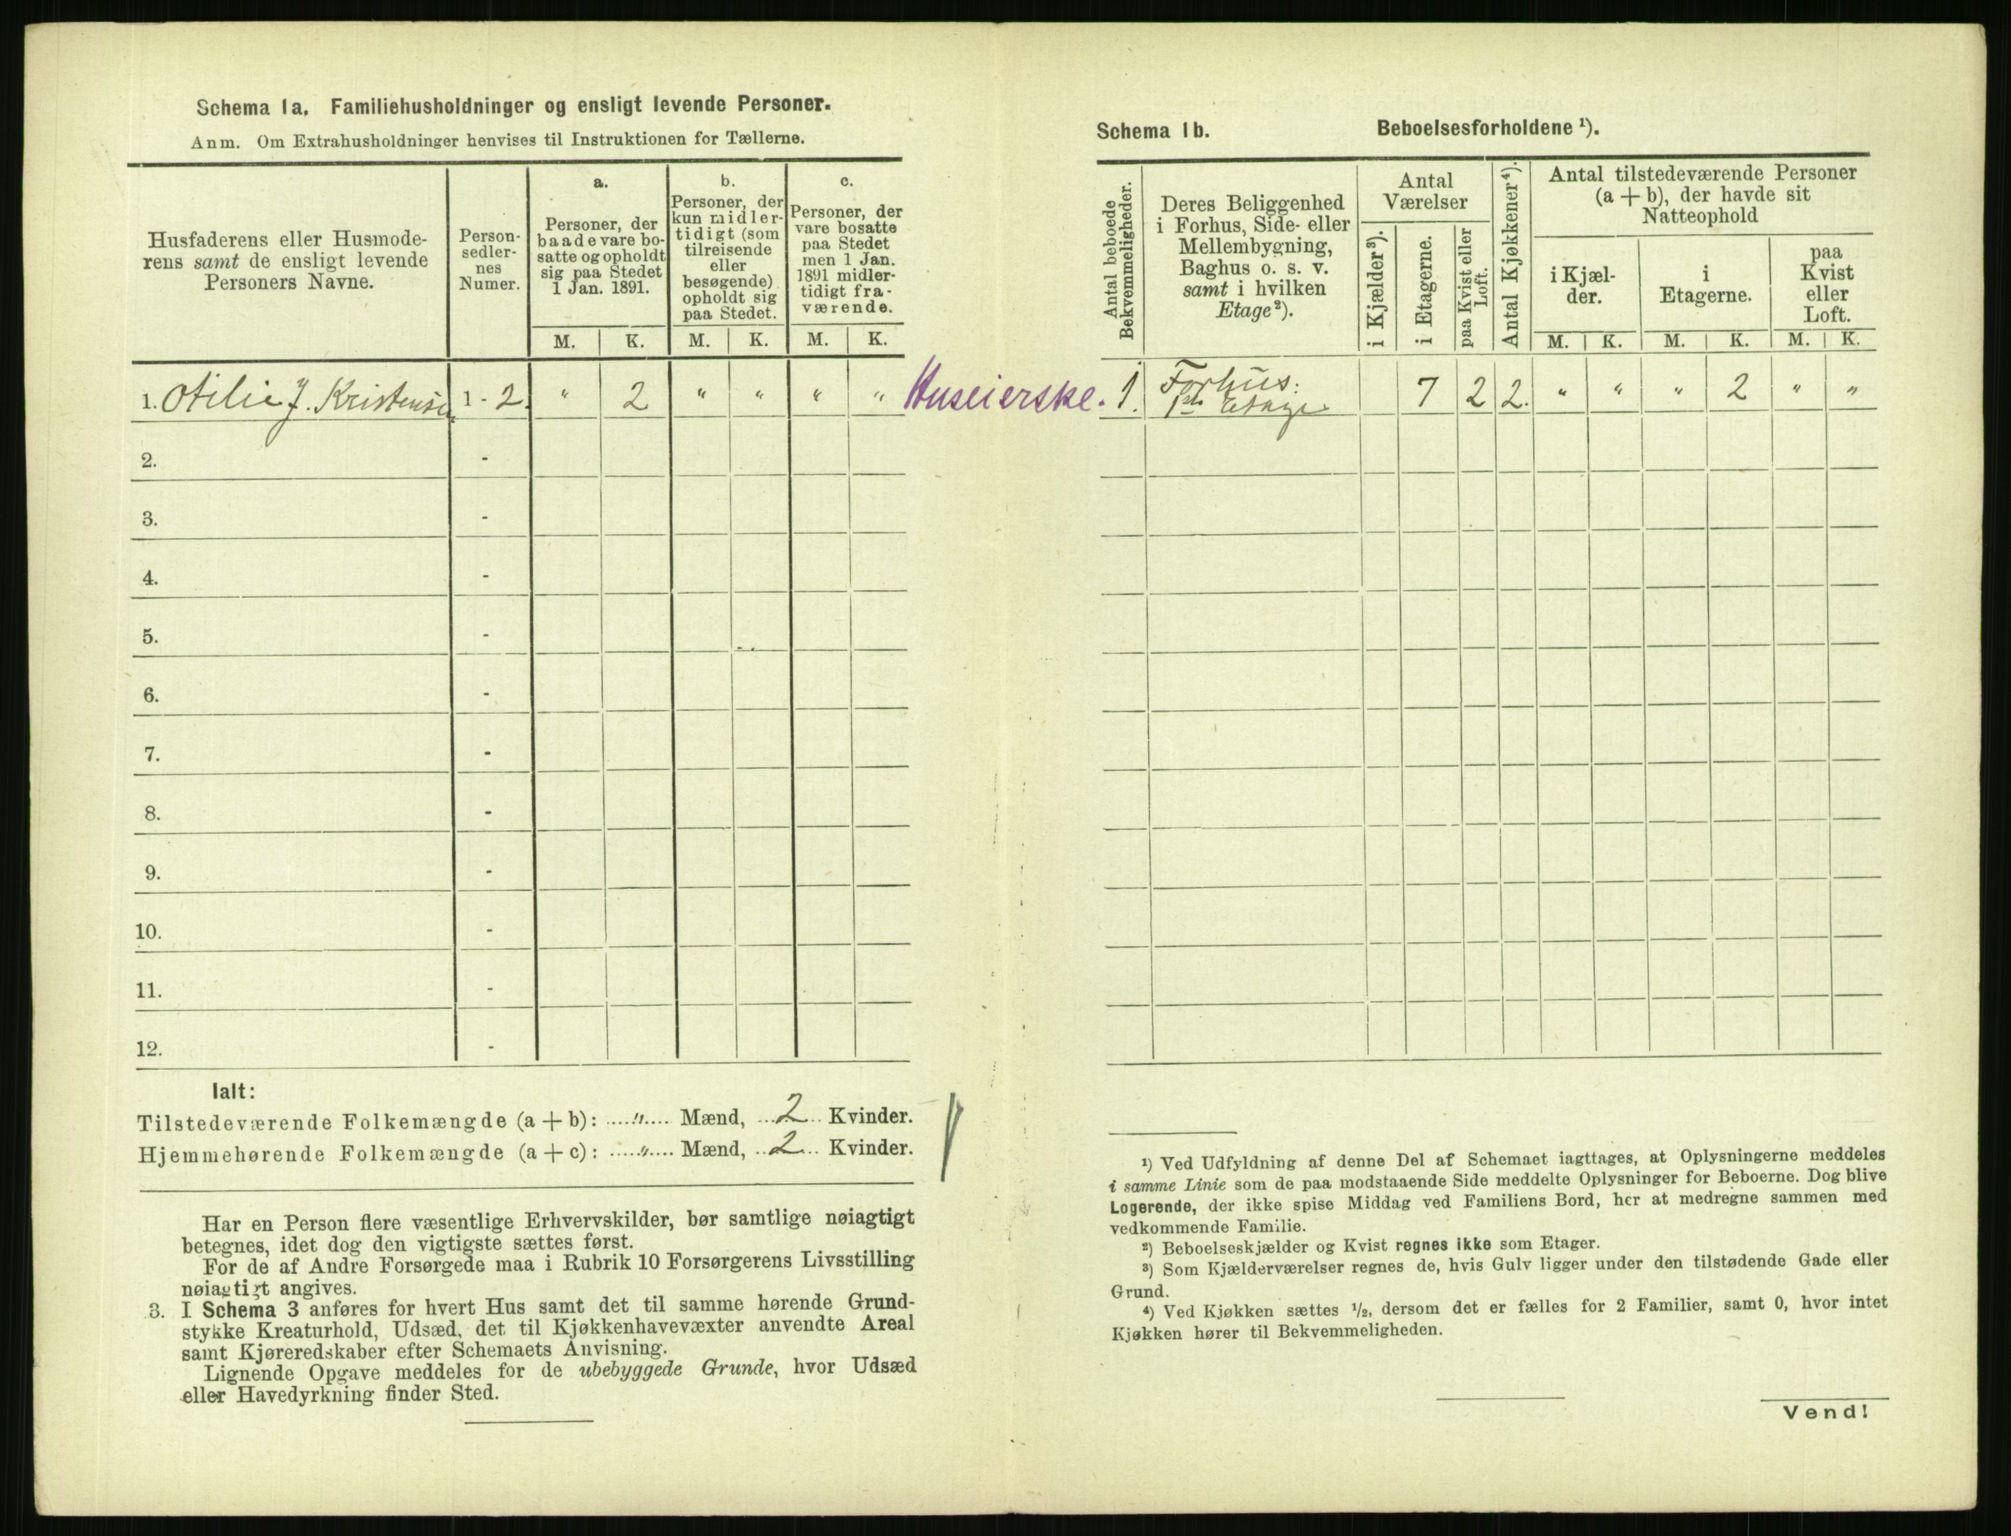 Schema 1a. Familiehusholdninger og ensligt levende Personer.
Anm. Om Extrahusholdninger henvises til Instruktionen for Tællerne.
Husfaderens eller Husmode-
rens samt de ensligt levende
Personers Navne.
Person-
sedler-
nes
Numer.
a.
Personer, der
baade vare bo-
satte og opholdt
sig paa Stedet
1 Jan. 1891.
b.
Personer, der
kun midler-
tidigt (som
tilreisende
eller
besøgende)
opholdt sig
paa Stedet.
c.
Personer, der
vare bosatte
paa Stedet
men 1 Jan.
1891 midler-
tidigt fra-
værende.
M. K. M. K. M. K.
1. Otilie J. Kristensen 1 - 2. " 2 " " " " Huseierske.
2. -
3. -
4. -
5. -
6. -
7. -
8. -
9. -
10. -
11. -
12. -
Ialt:
Tilstedeværende Folkemængde (a + b): ....."..... Mænd, ...2... Kvinder.
Hjemmehørende Folkemængde (a + c): ....."..... Mænd, ...2... Kvinder.
Har en Person flere væsentlige Erhvervskilder, bør samtlige nøiagtigt
betegnes, idet dog den vigtigste sættes først.
For de af Andre Forsørgede maa i Rubrik 10 Forsørgerens Livsstilling
nøiagtigt angives.
3. I Schema 3 anføres for hvert Hus samt det til samme hørende Grund-
stykke Kreaturhold, Udsæd, det til Kjøkkenhavevæxter anvendte Areal
samt Kjøreredskaber efter Schemaets Anvisning.
Lignende Opgave meddeles for de ubebyggede Grunde, hvor Udsæd
eller Havedyrkning finder Sted.
Schema 1b. Beboelsesforholdene ¹).
Antal beboede
Bekvemmeligheder.
Deres Beliggenhed
i Forhus, Side- eller
Mellembygning,
Baghus o. s. v.
samt i hvilken
Etage²).
Antal
Værelser
i Kjælder³).
i Etagerne.
paa Kvist eller
Loft.
Antal Kjøkkener⁴).
Antal tilstedeværende Personer
(a + b), der havde sit
Natteophold
i Kjæl-
der.
i
Etagerne.
paa
Kvist
eller
Loft.
M. K. M. K. M. K.
1. Forhus. 7 2 2. " " " 2 " "
1ste Etage
¹) Ved Udfyldning af denne Del af Schemaet iagttages, at Oplysningerne meddeles
i samme Linie som de paa modstaaende Side meddelte Oplysninger for Beboerne. Dog blive
Logerende, der ikke spise Middag ved Familiens Bord, her at medregne sammen med
vedkommende Familie.
²) Beboelseskjælder og Kvist regnes ikke som Etager.
³) Som Kjælderværelser regnes de, hvis Gulv ligger under den tilstødende Gade eller
Grund.
⁴) Ved Kjøkken sættes ½, dersom det er fælles for 2 Familier, samt 0, hvor intet
Kjøkken hører til Bekvemmeligheden.
Vend!